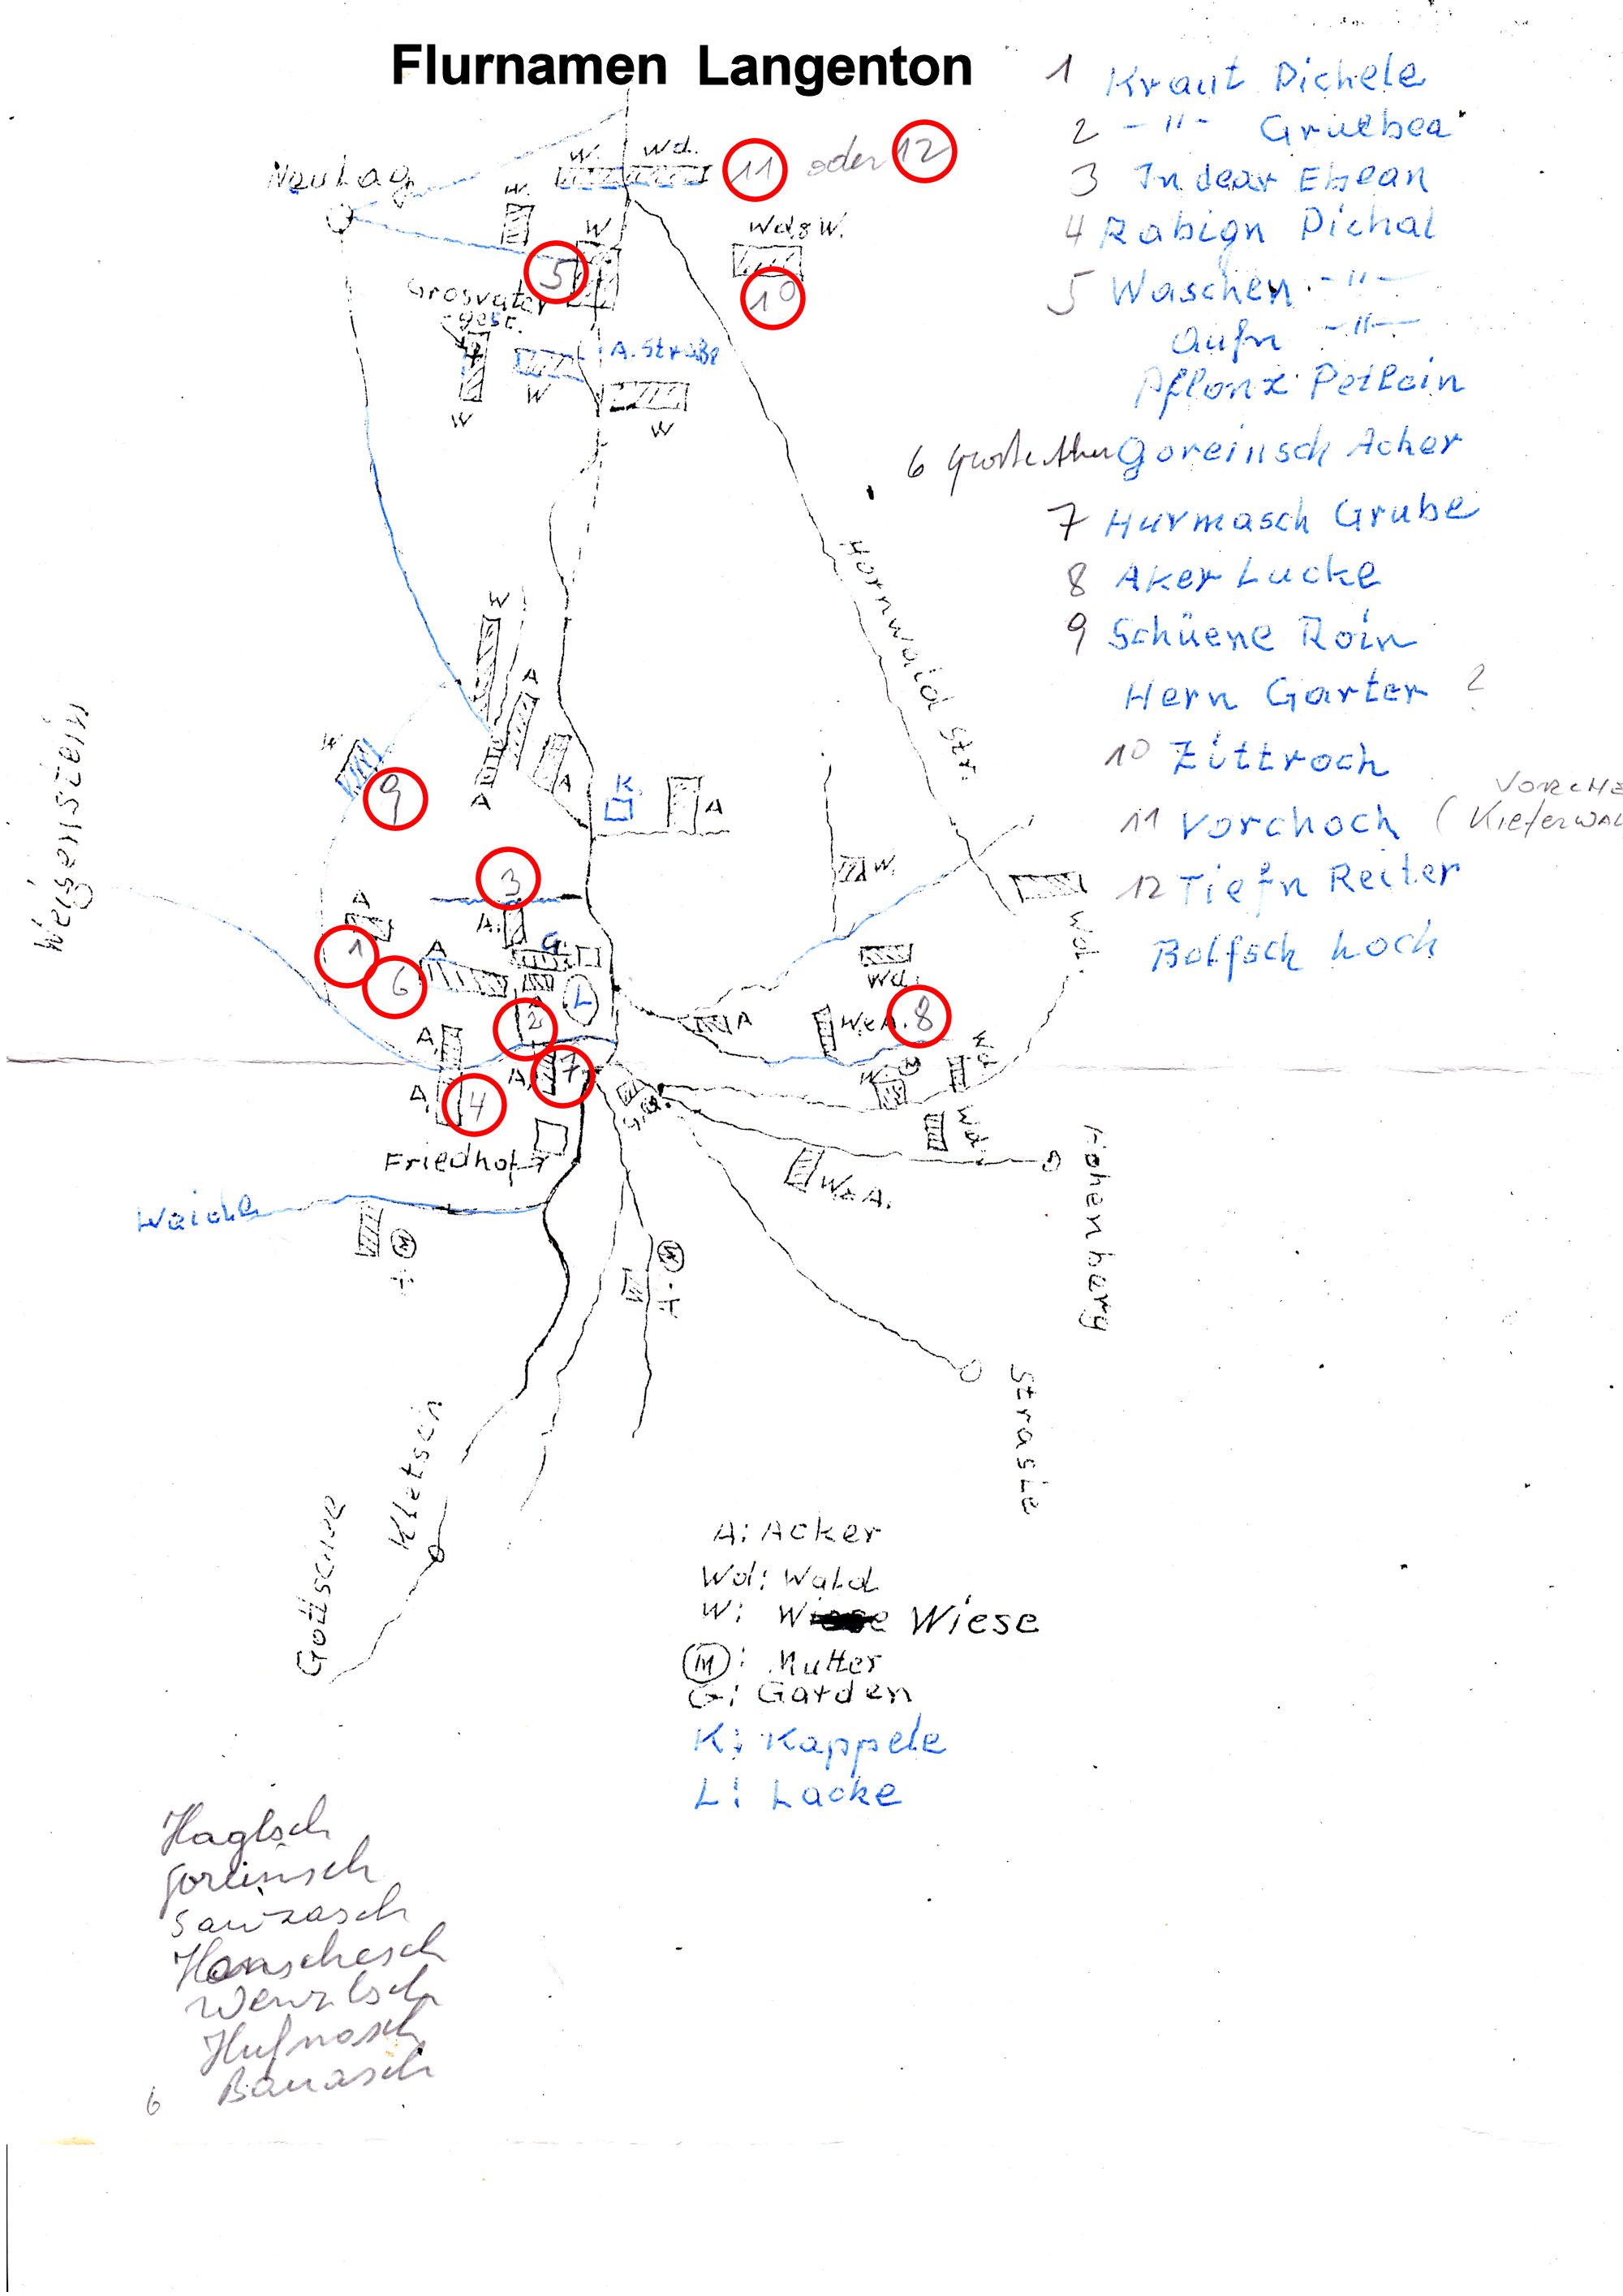 Flurnamen Langenton
1 Kraut Dichele
2 -"- Gruebea
3 In dear Ebean
4 Rabign Dichal
5 Waschen -"-
Aufn -"-
Pflonz Petlein
6 Goreinsch Acher
7 Hurmasch Grube
8 Aker Lucke
9 Schüene Roin
Hern Garter ?
10 Zittroch
11 Vorchoch (Kieferwal
12 Tiefn Reiter
Bolfsch hoch
Neuhag
W. Wd.
11 oder 12
W.
W
Wd & W.
5
10
Grosvater
gest.
A. Straße
W
W
W
Hornwald Str.
W
A
W
9
A
A
K.
A
Weisenstein
3
W.
A
A.
G.
Wd.
1
6
A
L
Wd.
2
A
W&A.
8
A.
A.
7
W
Wd
A.
4
G.
Wd.
Friedhof
W&A.
Hohenberg
Waiche
M
M
Strasle
Kletsch
Gottschee
A: Acker
Wd: Wald
W: Wiese Wiese
M: Mutter
G: Garden
K: Kappele
L: Lacke
Haglsch
Goreinsch
Honschesch
Wenzlsch
Hufnasch
6 Bauasch